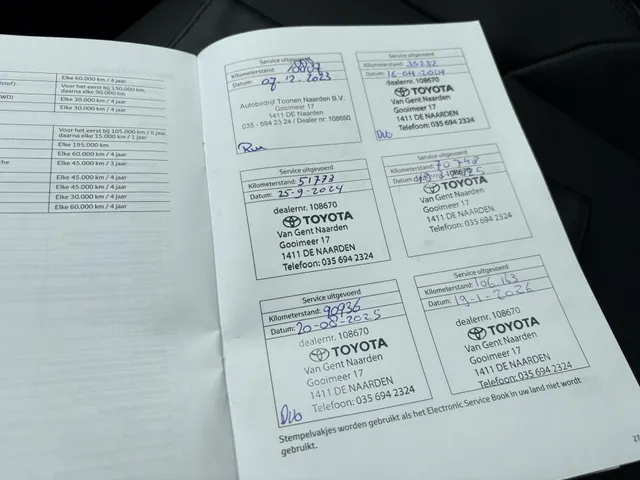 Elke 60.000 km / 4 jaar
Voor het eerst bij 150.000 km,
daarna elke 90.000 km
Elke 30.000 km / 4 jaar
Elke 30.000 km / 4 jaar
Voor het eerst bij 105.000 km / 6 jaar,
daarna elke 15.000 km / 1 jaar
Elke 195.000 km
Elke 60.000 km / 4 jaar
Elke 45.000 km / 3 jaar
Elke 45.000 km / 4 jaar
Elke 45.000 km / 4 jaar
Elke 30.000 km / 4 jaar
Elke 60.000 km / 4 jaar
Service uitgevoerd
Kilometerstand:
Datum: 07-12-2023
Autobedrijf Toonen Naarden B.V.
Gooimeer 17
1411 DE NAARDEN
035 - 694 23 24 / Dealer nr: 108660
Service uitgevoerd
Kilometerstand: 35232
Datum: 16-04-2024
dealernr. 108670
TOYOTA
Van Gent Naarden
Gooimeer 17
1411 DE NAARDEN
Telefoon: 035 694 2324
Service uitgevoerd
Kilometerstand: 51773
Datum: 25-9-2024
dealernr. 108670
TOYOTA
Van Gent Naarden
Gooimeer 17
1411 DE NAARDEN
Telefoon: 035 694 2324
Service uitgevoerd
Kilometerstand: 70748
Datum:
TOYOTA
Van Gent Naarden
Gooimeer 17
1411 DE NAARDEN
Telefoon: 035 694 2324
Service uitgevoerd
Kilometerstand: 90936
Datum: 20-08-2025
dealernr. 108670
TOYOTA
Van Gent Naarden
Gooimeer 17
1411 DE NAARDEN
Telefoon: 035 694 2324
Service uitgevoerd
Kilometerstand: 106.163
Datum: 19-1-2026
dealernr. 108670
TOYOTA
Van Gent Naarden
Gooimeer 17
1411 DE NAARDEN
Telefoon: 035 694 2324
Stempelvakjes worden gebruikt als het Electronic Service Book in uw land niet wordt
gebruikt.